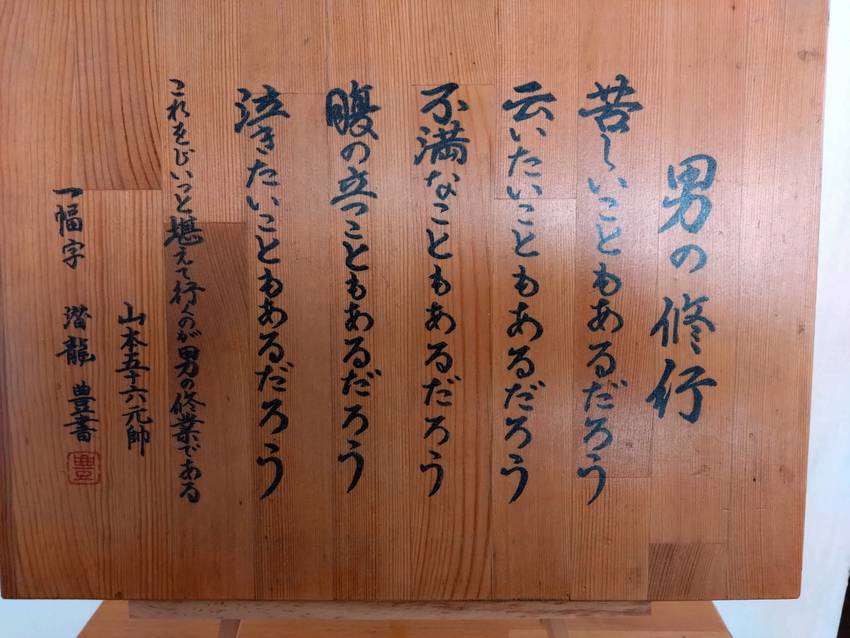 男の修行
苦しいこともあるだろう
云いたいこともあるだろう
不満なこともあるだろう
腹の立つこともあるだろう
泣きたいこともあるだろう
これをじいっと堪えて行くのが男の修業である
山本五十六元帥
一幅字 潜龍 豊書
豊